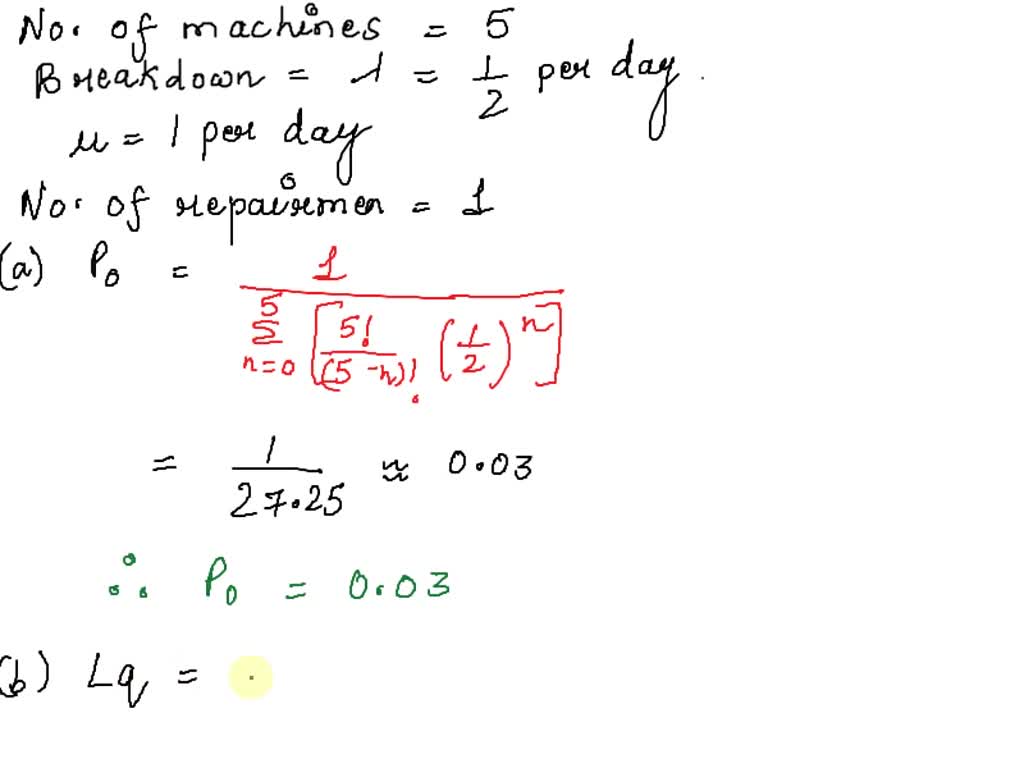 No. of machines = 5
Breakdown = λ = 1/2 per day.
μ = 1 per day
No. of repairmen = 1
(a) P₀ = 1 / ∑ₙ₌₀⁵ [5!/(5-n)! (1/2)ⁿ]
= 1/27.25 ≈ 0.03
∴ P₀ = 0.03
(b) Lq =